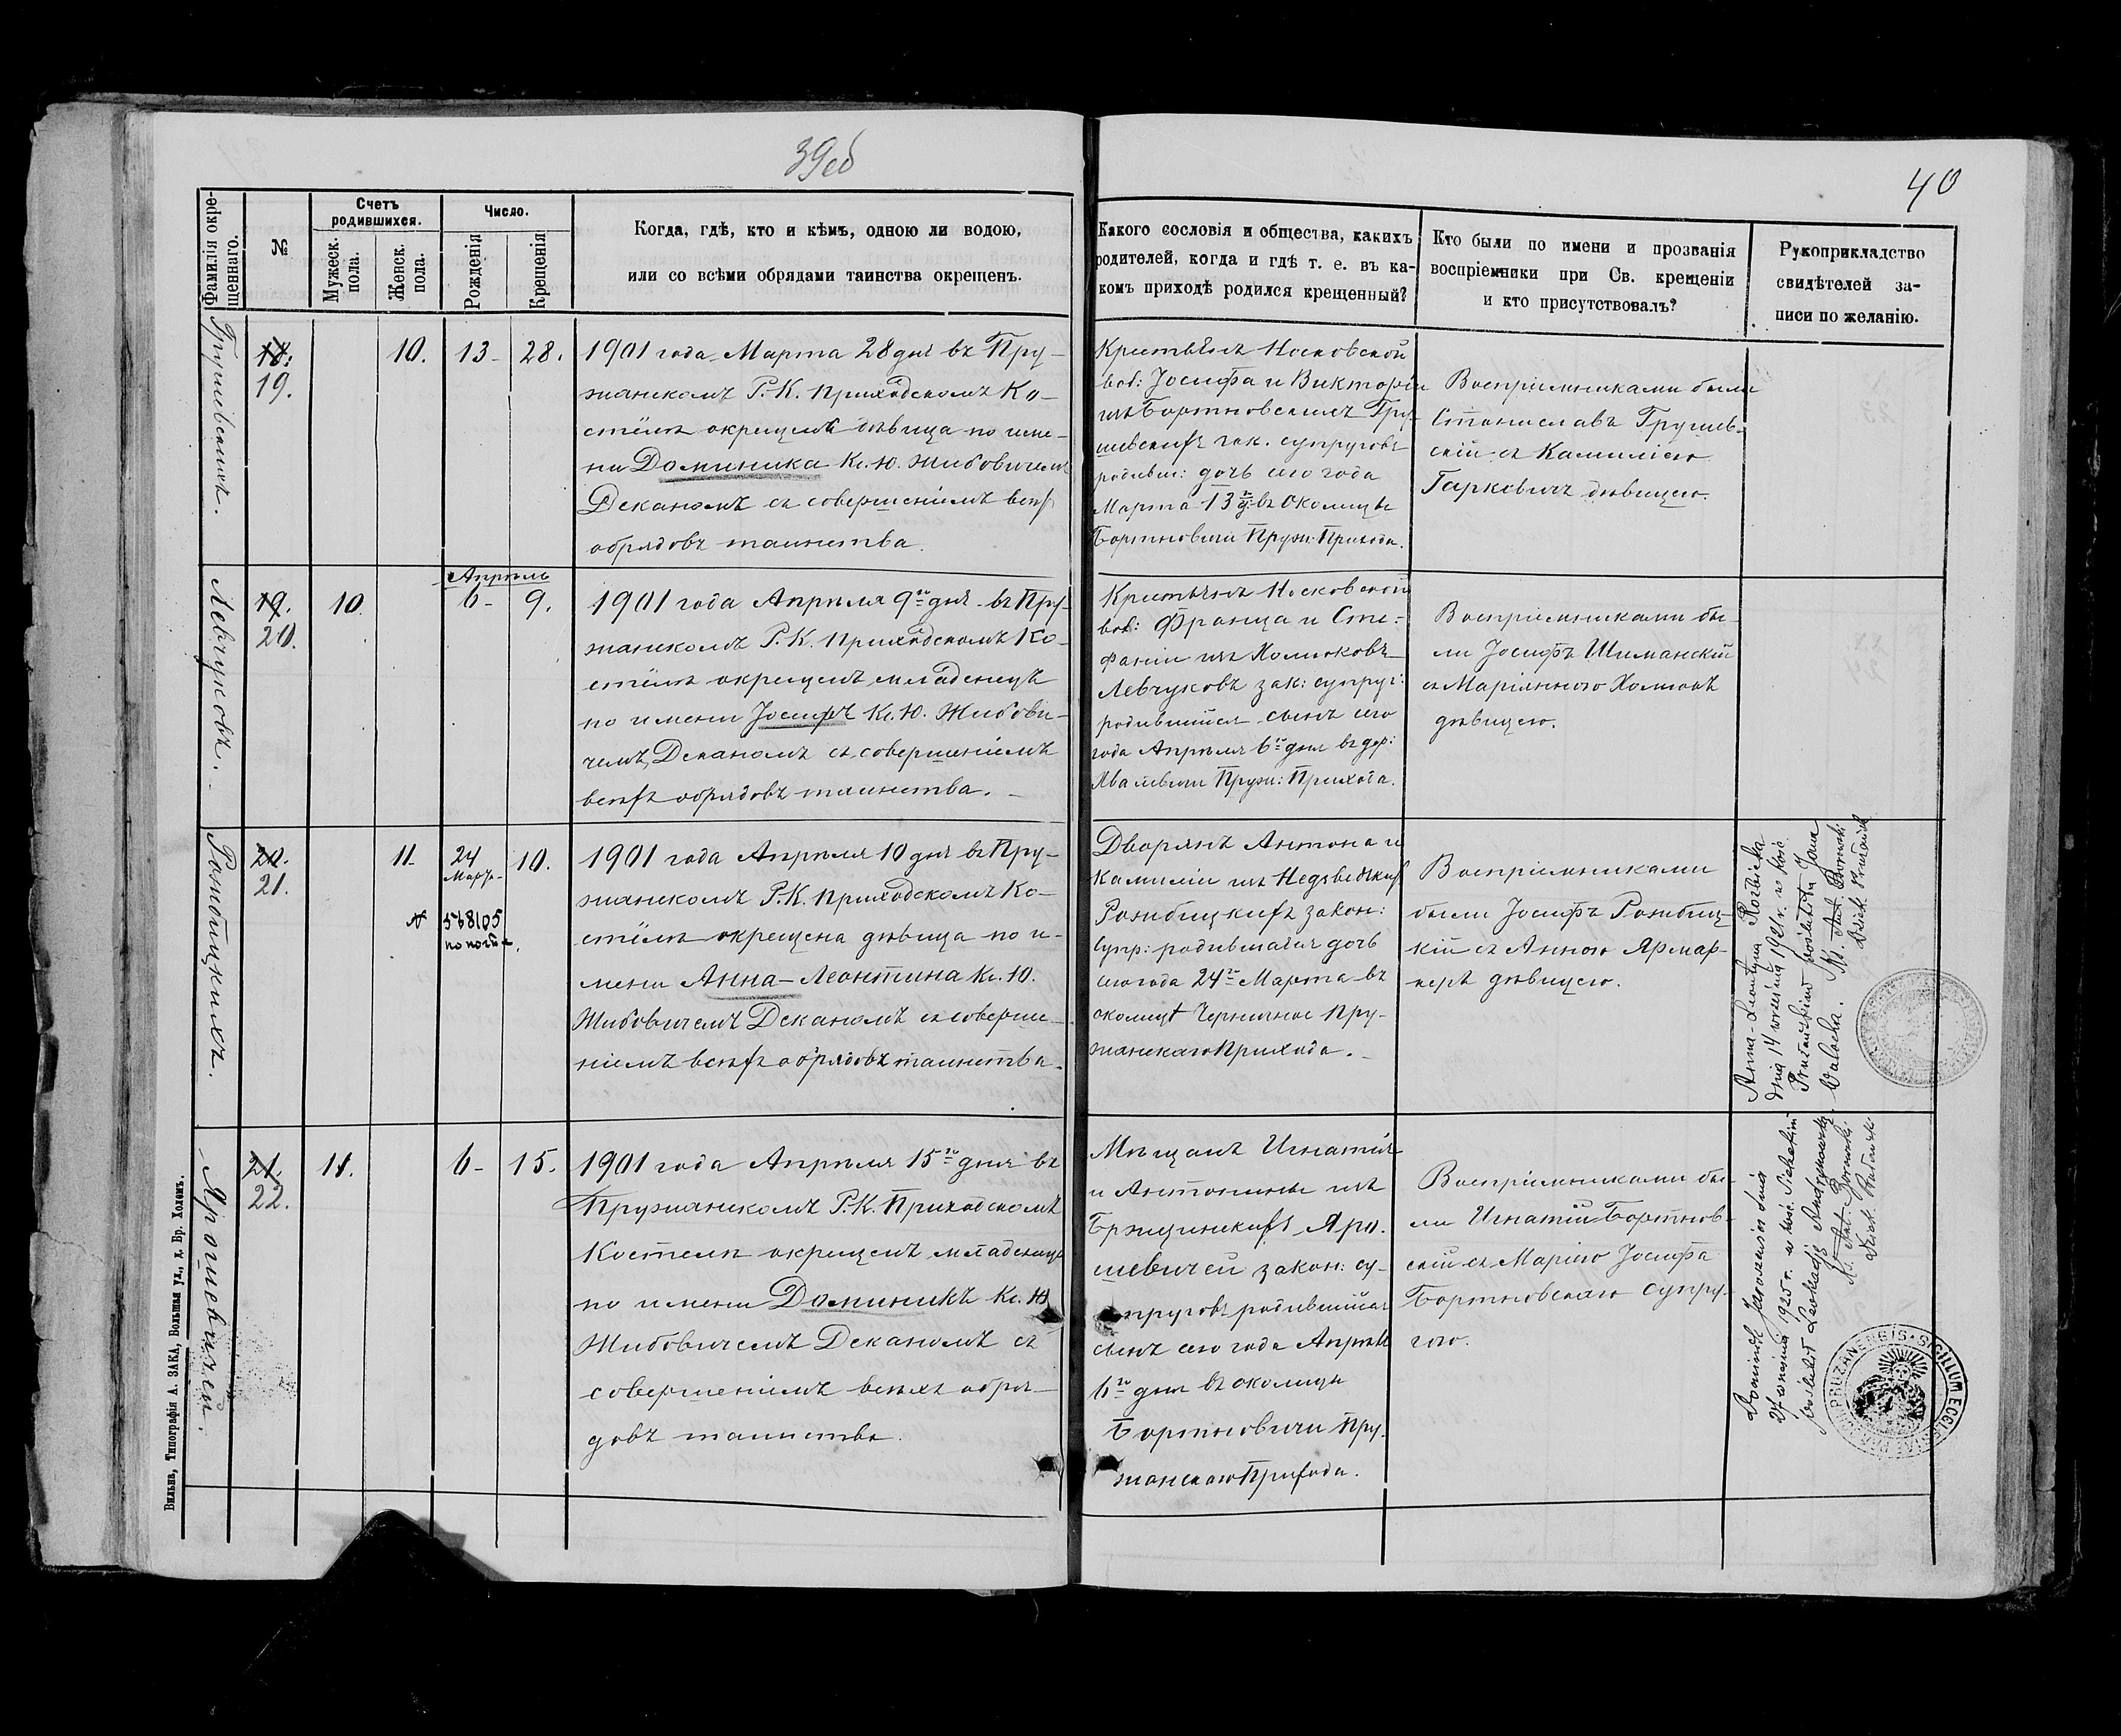 39об
40
Фамилія окре-
щеннаго.
№
Счетъ
родившихся.
Мужеск.
пола.
Женск.
пола.
Число.
Рожденія
Крещенія
Когда, гдѣ, кто и кѣмъ, одною ли водою,
или со всѣми обрядами таинства окрещенъ.
Какого сословія и общества, какихъ
родителей, когда и гдѣ т. е. въ ка-
комъ приходѣ родился крещенный?
Кто были по имени и прозванія
воспріемники при Св. крещеніи
и кто присутствовалъ?
Рукоприкладство
свидѣтелей за-
писи по желанію.
Грушевскихъ.
18.
19.
10.
13-
28.
1901 года Марта 28 дня въ Пру-
жанскомъ Р. К. Приходскомъ Ко-
стёлѣ окрещена дѣвица по име-
ни Доминика Кс. Ю. Жибовичемъ
Деканомъ съ совершеніемъ всѣхъ
обрядовъ таинства.
Крестьянъ Носковской
вол: Іосифа и Викторіи
изъ Бортновскихъ Гру-
шевскихъ зак. супруговъ
родивш: дочь сего года
Марта 13 д. въ Околицѣ
Бортновичи Пруж: Прихода.
Воспріемниками были
Станиславъ Грушев-
скій съ Камиліею
Гаркевичъ дѣвицею.
Левчуковъ.
19.
20.
10.
Апрѣль
6-
9.
1901 года Апрѣля 9го дня въ Пру-
жанскомъ Р. К. Приходскомъ Ко-
стёлѣ окрещенъ младенецъ
по имени Іосифъ Кс. Ю. Жибови-
чемъ Деканомъ съ совершеніемъ
всѣхъ обрядовъ таинства.
Крестьянъ Носковской
вол: Франца и Сте-
фаніи изъ Холиковъ
Левчуковъ зак: супруг:
родившійся сынъ сего
года Апрѣля 6го дня въ дер:
Пруж: Прихода.
Воспріемниками бы-
ли Іосифъ Шиманскій
съ Маріянною
дѣвицею.
Рожбицкихъ.
20.
21.
11.
24
Марта
10.
N
568105
1901 года Апрѣля 10 дня въ Пру-
жанскомъ Р. К. Приходскомъ Ко-
стёлѣ окрещена дѣвица по и-
мени Анна-Леонтина Кс. Ю.
Жибовичемъ Деканомъ съ соверше-
ніемъ всѣхъ обрядовъ таинства.
Дворянъ Антона и
Камиліи изъ Недзведзкихъ
Рожбицкихъ закон:
Супр: родившаяся дочь
сего года 24го Марта въ
околицѣ Черничное Пру-
жанскаго Прихода.
Воспріемниками
были Іосифъ Рожбиц-
кій съ Анною Ярмар-
керъ дѣвицею.
Anna-Leontyna Rozbicka
dnia 14 września 1921 r. w kość.
Prużańskim poślubiła Jana
Walocha. Ks.
Dziek. Prużański
Ярошевичей.
21.
22.
11.
6-
15.
1901 года Апрѣля 15го дня въ
Пружанскомъ Р. К. Приходскомъ
Костелѣ окрещенъ младенецъ
по имени Доминикъ Кс. Ю.
Жибовичемъ Деканомъ съ
совершеніемъ всѣхъ обря-
довъ таинства.
Мѣщанъ Игнатія
и Антонины изъ
Бржезинскихъ Яро-
шевичей закон: су-
пруговъ родившійся
сынъ сего года Апрѣля
6го дня въ околицѣ
Бортновичи Пру-
жанскаго Прихода.
Воспріемниками бы-
ли Игнатій Бортнов-
скій съ Маріею Іосифа
Бортновскаго супру-
гою.
Dominik Jaroszewicz dnia
27 1925 r. w kość.
poślubił Leokadję
Ks.
Dziek. Prużański
PRUZANENSIS · SIGILLUM ECCLESIAE
Вильна, Типографія А. ЗАКА, Большая ул., д. Бр. Холемъ.